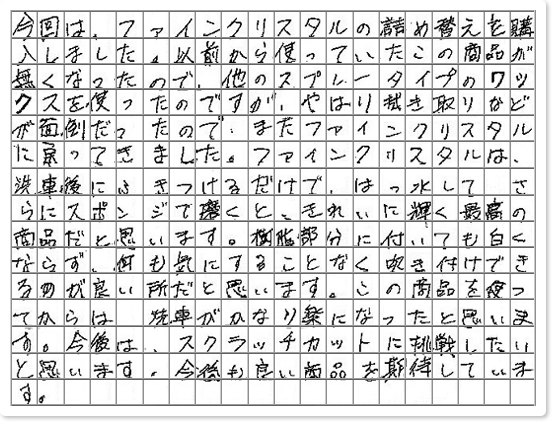 今回は、ファインクリスタルの詰め替えを購
入しました。以前から使っていたこの商品が
無くなったので、他のスプレータイプのワッ
クスを使ったのですが、やはり拭き取りなど
が面倒だったので、またファインクリスタル
に戻ってきました。ファインクリスタルは、
洗車後にふきつけるだけで、はっ水して さ
らにスポンジで磨くと、きれいに輝く最高の
商品だと思います。樹脂部分に付いても白く
ならず、何も気にすることなく吹き付けでき
るのが良い所だと思います。この商品を使っ
てからは 洗車がかなり楽になったと思いま
す。今後は、スクラッチカットに挑戦したい
と思います。今後も良い商品を期待していま
す。